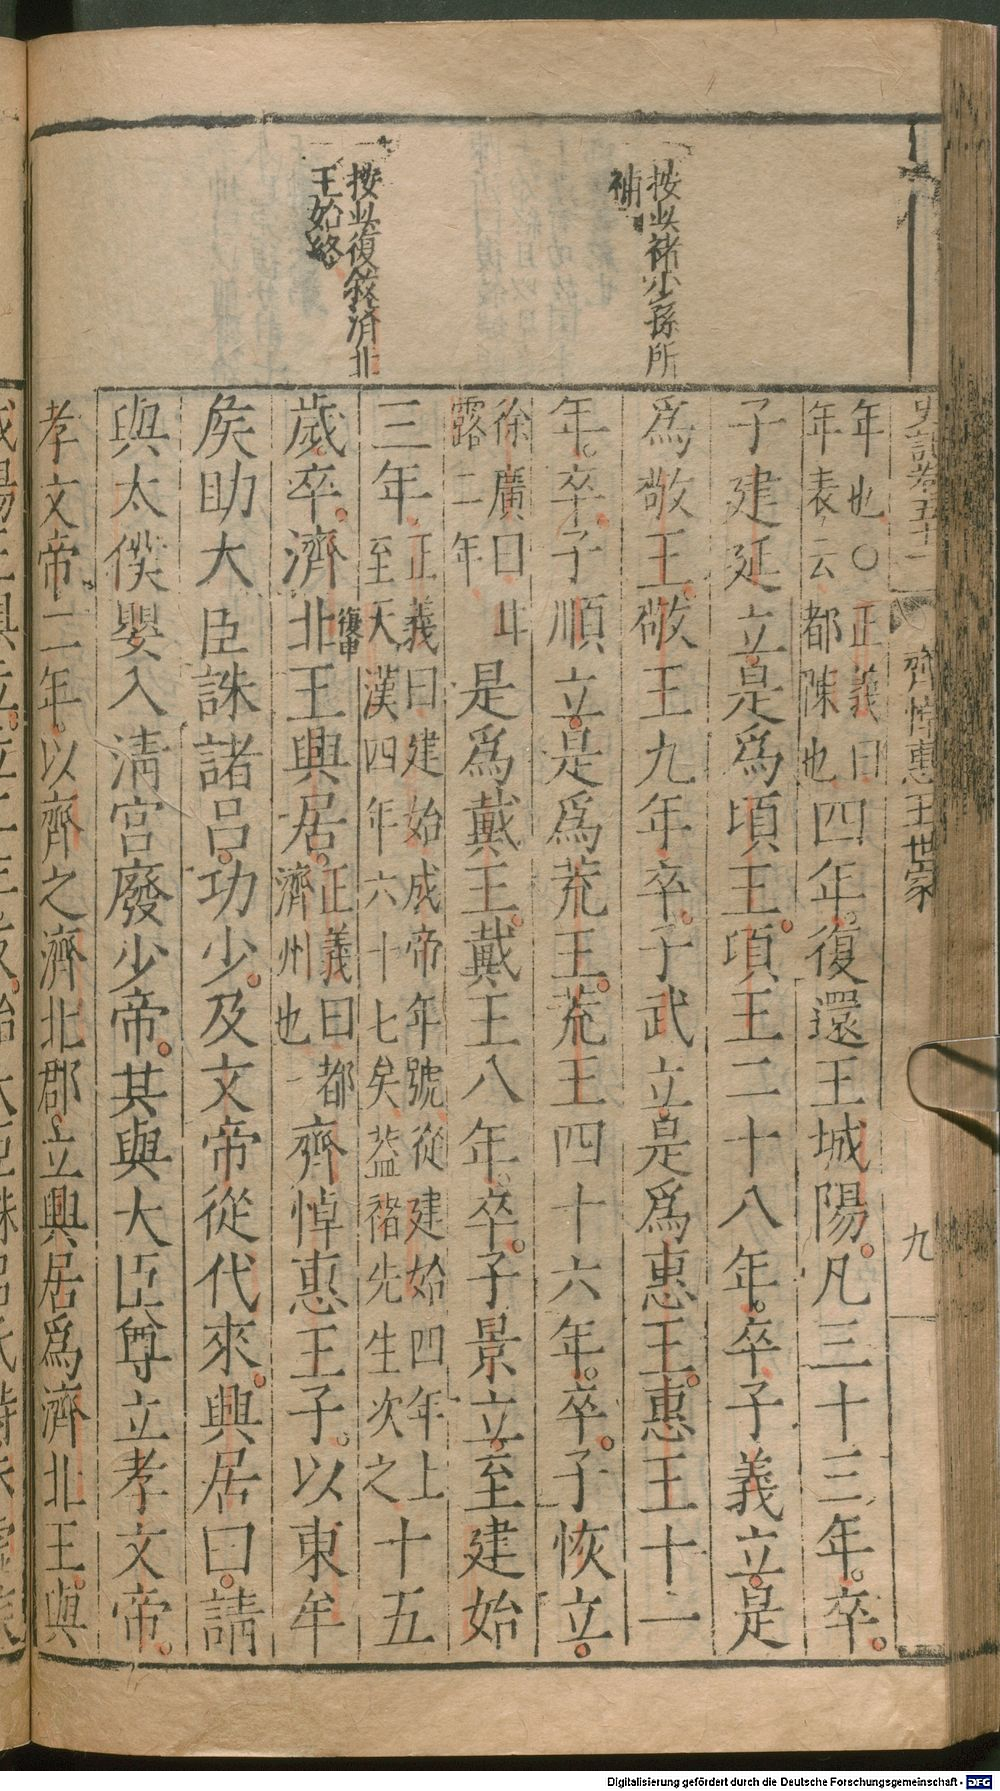 按此褚少孫所
補
按此復敘濟北
王始終
史記卷五十二
齊悼惠王世家
九
年也○正義曰
年表云都陳也
四年復還王城陽凡三十三年卒
子建延立是為頃王頃王二十八年卒子義立是
為敬王敬王九年卒子武立是為惠王惠王十二
年卒子順立是為荒王荒王四十六年卒子恢立
徐廣曰甘
露二年
是為戴王戴王八年卒子景立至建始
三年
正義曰建始成帝年號從建始四年上
至天漢四年六十七矣蓋褚先生次之
十五
歲卒濟北王興居
復申
正義曰都
濟州也
齊悼惠王子以東牟
矦助大臣誅諸呂功少及文帝從代來興居曰請
與太僕嬰入清宮廢少帝其與大臣尊立孝文帝
孝文帝二年以齊之濟北郡立興居為濟北王與
Digitalisierung gefördert durch die Deutsche Forschungsgemeinschaft - DFG